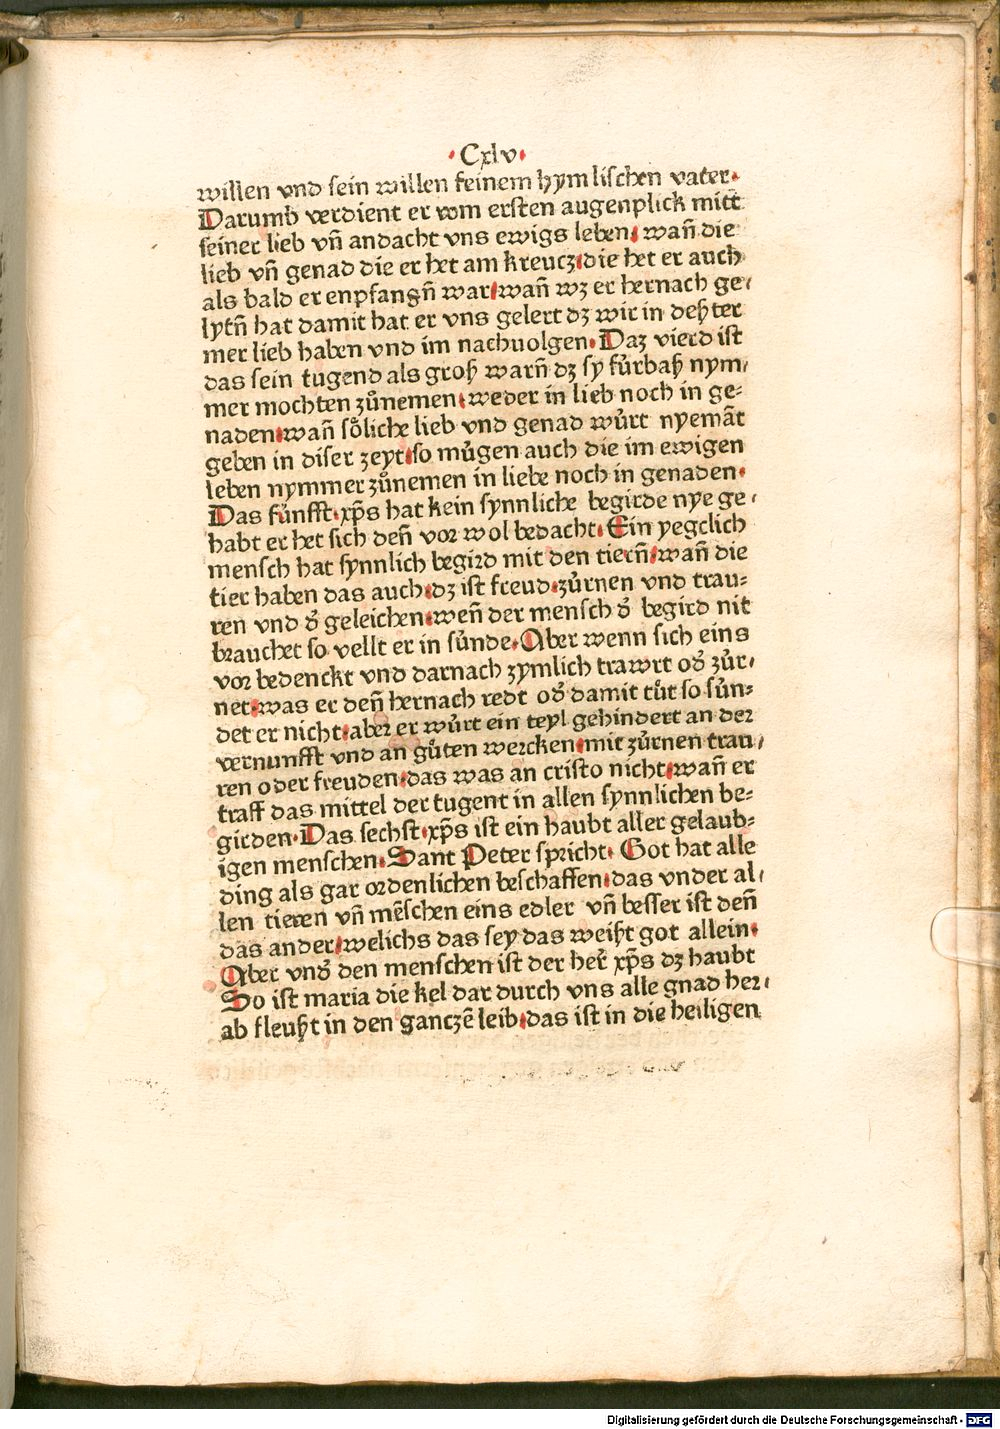 ·Cxlv·
willen vnd sein willen seinem hymlischen vater·
Darumb verdient er vom ersten augenplick mitt
seiner lieb vn̄ andacht vns ewigs leben· wan̄ die
lieb vn̄ genad die er het am kreucz·die het er auch
als bald er enpfangn̄ war·wan̄ wz er hernach ge⸗
lytn̄ hat damit hat er vns gelert dz wir in deßter
mer lieb haben vnd im nachuolgen· Daz vierd ist
das sein tugend als groß warn̄ dz sy fůrbaß nym⸗
mer mochten zůnemen·weder in lieb noch in ge⸗
naden·wan̄ soͤliche lieb vnd genad wůrt nyemāt
geben in diser zeyt·so můgen auch die im ewigen
leben nymmer zůnemen in liebe noch in genaden·
Das fůnfft·xp̄s hat kein synnliche begirde nye ge⸗
habt er het sich den̄ vor wol bedacht· Ein yegclich
mensch hat synnlich begird mit den tiern̄·wan̄ die
tier haben das auch·dz ist freud·zůrnen vnd trau⸗
ren vnd dʼ geleichen·wen̄ der mensch dʼ begird nit
brauchet so vellt er in sůnde·Aber wenn sich eins
vor bedenckt vnd darnach zymlich trawrt odʼ zůr⸗
net·was er den̄ hernach redt odʼ damit tůt so sůn⸗
det er nicht·aber er wůrt ein teyl gehindert an der
vernunfft vnd an gůten wercken·mit zůrnen trau⸗
ren oder freuden·das was an cristo nicht·wan̄ er
traff das mittel der tugent in allen synnlichen be⸗
girden·Das sechst·xp̄s ist ein haubt aller gelaub⸗
igen menschen·Sant Peter spricht· Got hat alle
ding als gar ordenlichen beschaffen·das vnder al⸗
len tieren vn̄ mēschen eins edler vn̄ besser ist den̄
das ander·welichs das sey das weißt got allein·
Aber vndʼ den menschen ist der herʼ xp̄s dz haubt
So ist maria die kel dar durch vns alle gnad her⸗
ab fleußt in den ganczē leib·das ist in die heiligen
Digitalisierung gefördert durch die Deutsche Forschungsgemeinschaft - DFG